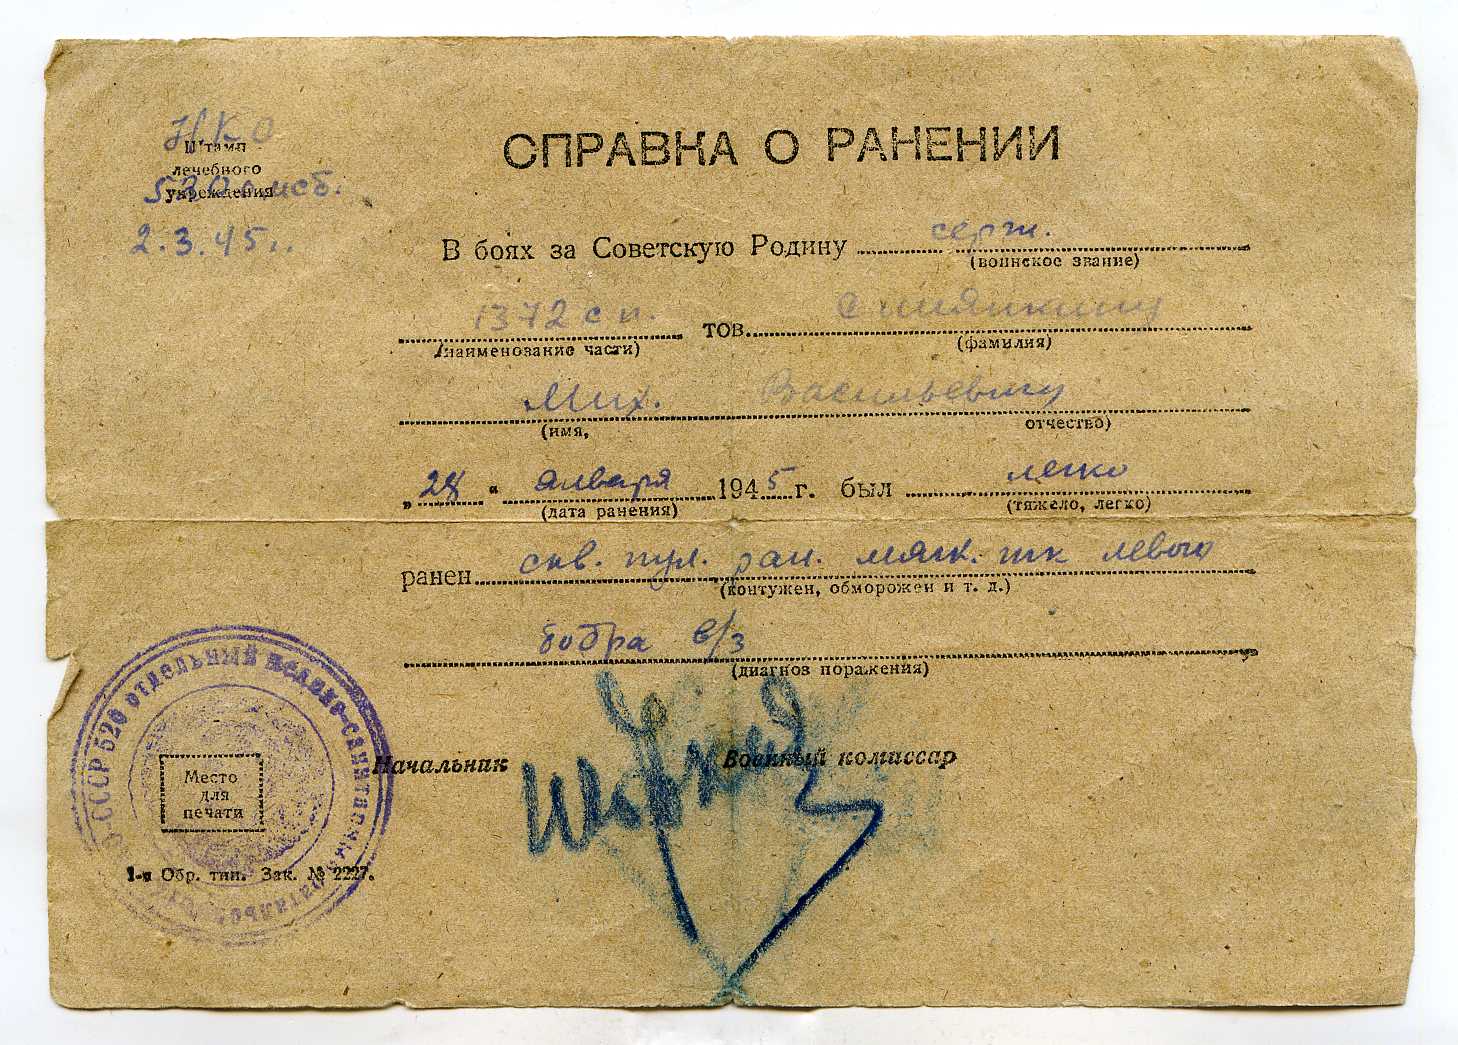 Н.К.О
Штамп
лечебного
учреждения
омсб.
2.3.45г.
СПРАВКА О РАНЕНИИ
В боях за Советскую Родину серж.
(воинское звание)
1372 сп. тов.
(наименование части) (фамилия)
Мих. Васильевич
(имя, отчество)
„28“ января 1945 г. был легко
(дата ранения) (тяжело, легко)
ранен скв. пул. ран. мягк. тк левого
(контужен, обморожен и т. д.)
бобра в/з
(диагноз поражения)
Начальник Военный комиссар
СССР 520 отдельный медико-санитарный
Место
для
печати
1-я Обр. тип. Зак. № 2227.